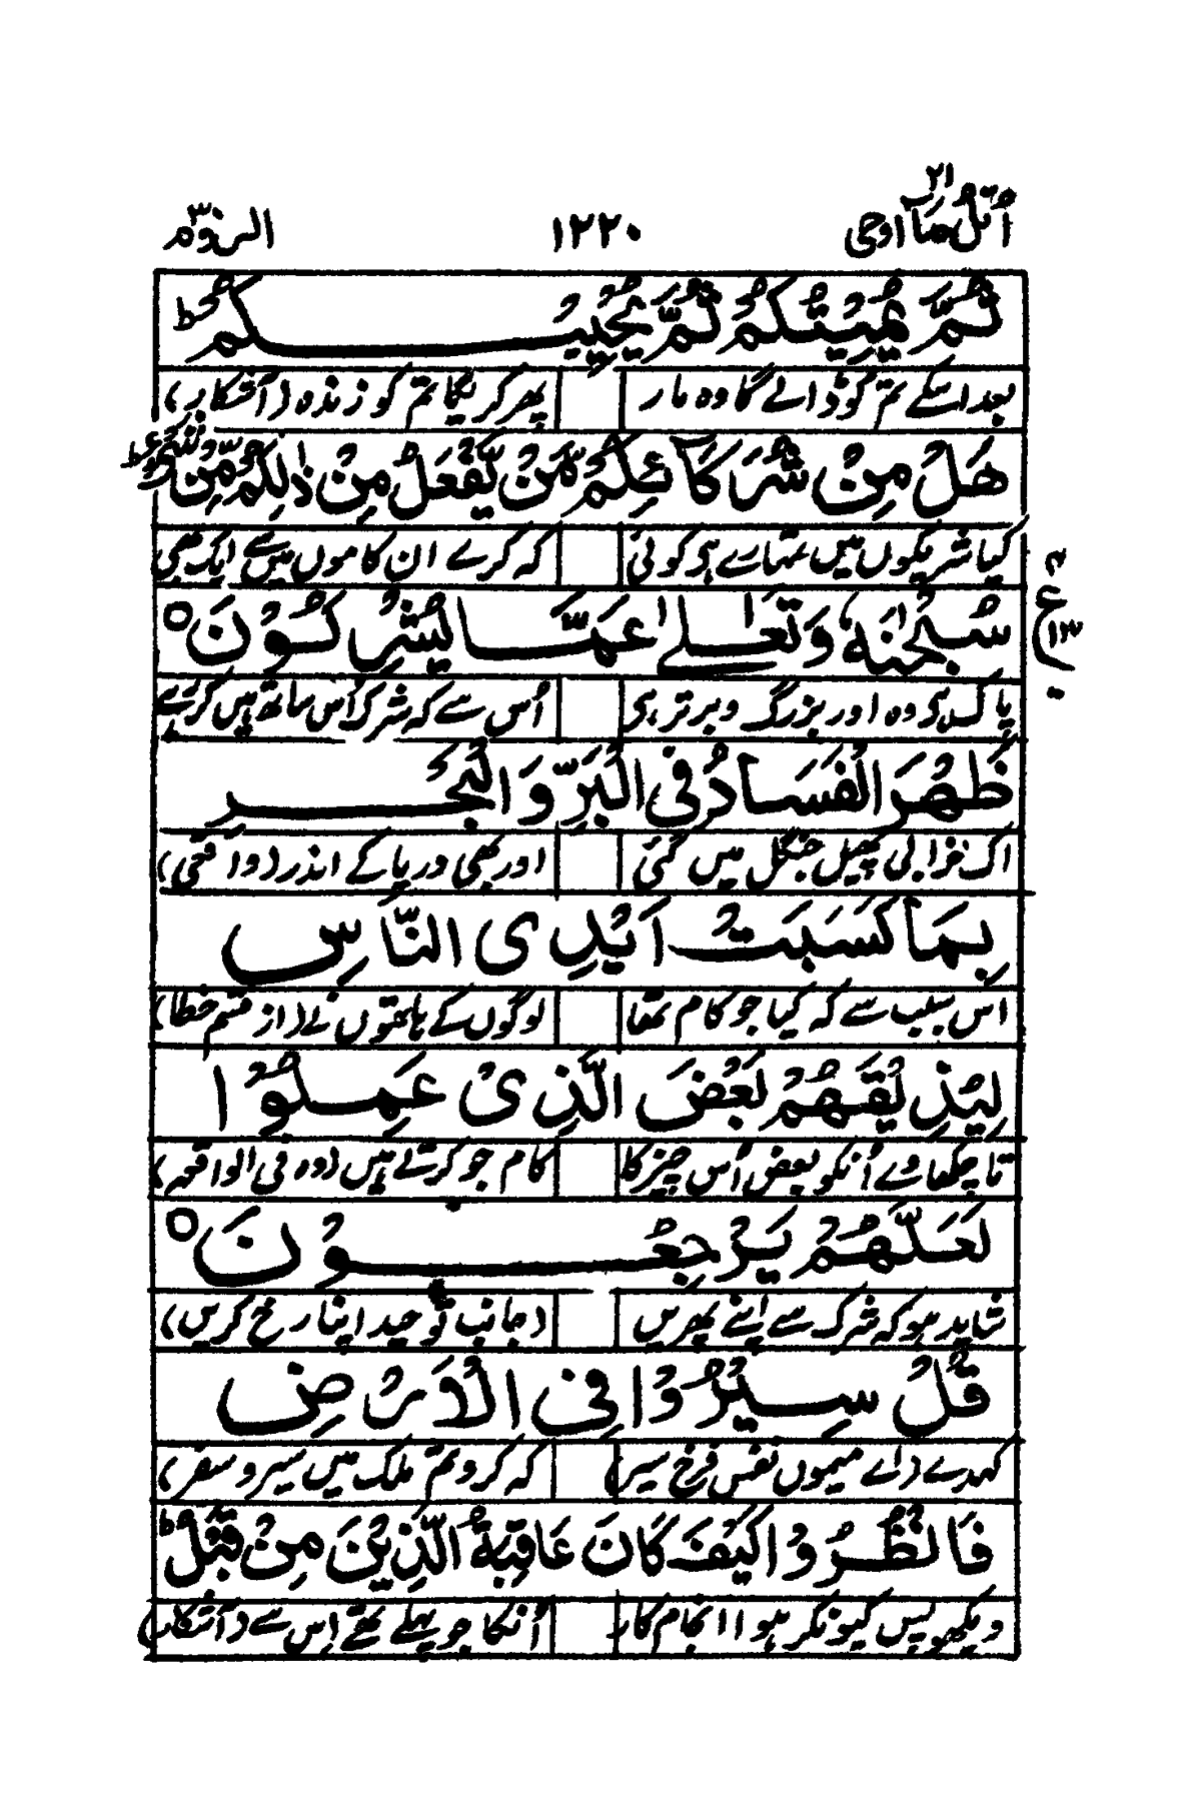 اُتْلُ مَآ اوحی ۲۱ ۱۲۲۰ الرّوم ۳۰
ثُمَّ یُمِیْتُکُمْ ثُمَّ یُحْیِیْکُمْ ؕ
بعد اسکے تم کو ڈالے گا وہ مار پھر کریگا تم کو زندہ (آشکار)
هَلْ مِنْ شُرَکَآئِکُمْ مَّنْ یَّفْعَلُ مِنْ ذٰلِکُمْ مِّنْ شَیْءٍ ؕ
کیا شریکوں میں تمہارے ہی کوئی کہ کرے ان کاموں میں سے ایک بھی
سُبْحٰنَهٗ وَ تَعٰلٰی عَمَّا یُشْرِکُوْنَ ۝
پاک ہی وہ اور بزرگ و برتر ہی اُس سے کہ شرک اُس ساتھ ہیں کرتے
ظَهَرَ الْفَسَادُ فِی الْبَرِّ وَ الْبَحْرِ
اک خرابی پھیل جنگل میں گئی اور بھی دریا کے اندر (واقعی)
بِمَا کَسَبَتْ اَیْدِی النَّاسِ
اس سبب سے کہ کیا جو کام تھا لوگوں کے ہاتھوں نے (از قسم خطا)
لِیُذِیْقَهُمْ بَعْضَ الَّذِیْ عَمِلُوْا
تا چکھاوے اُنکو بعض اُس چیز کا کام جو کرتے ہیں (وہ فی الواقعہ)
لَعَلَّهُمْ یَرْجِعُوْنَ ۝
شاید ہو کہ شرک سے اپنے پھریں (جانب توحید اپنا رخ کریں)
قُلْ سِیْرُوْا فِی الْاَرْضِ
کہدے (اے میموں نفس فرخ سیر) کہ کرو تم ملک میں سیر و سفر)
فَانْظُرُوْا کَیْفَ کَانَ عَاقِبَةُ الَّذِیْنَ مِنْ قَبْلُ ؕ
دیکھو پس کیونکر ہوا انجام کار اُنکا جو پہلے تھے اِس سے (آشکار)